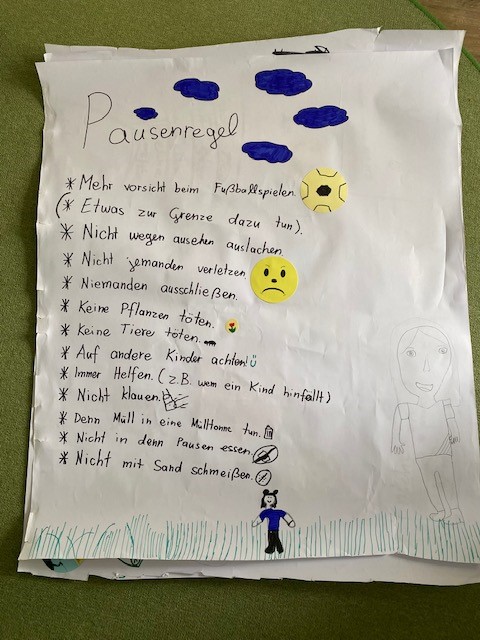 Pausenregel
* Mehr vorsicht beim Fußballspielen.
(* Etwas zur Grenze dazu tun).
* Nicht wegen ausehen auslachen.
* Nicht jemanden verletzen.
* Niemanden ausschließen.
* Keine Pflanzen töten.
* Keine Tiere töten.
* Auf andere Kinder achten!
* Immer Helfen. (z.B. wem ein Kind hinfällt)
* Nicht klauen.
* Denn Müll in eine Mülltonne tun.
* Nicht in denn Pausen essen.
* Nicht mit Sand schmeißen.